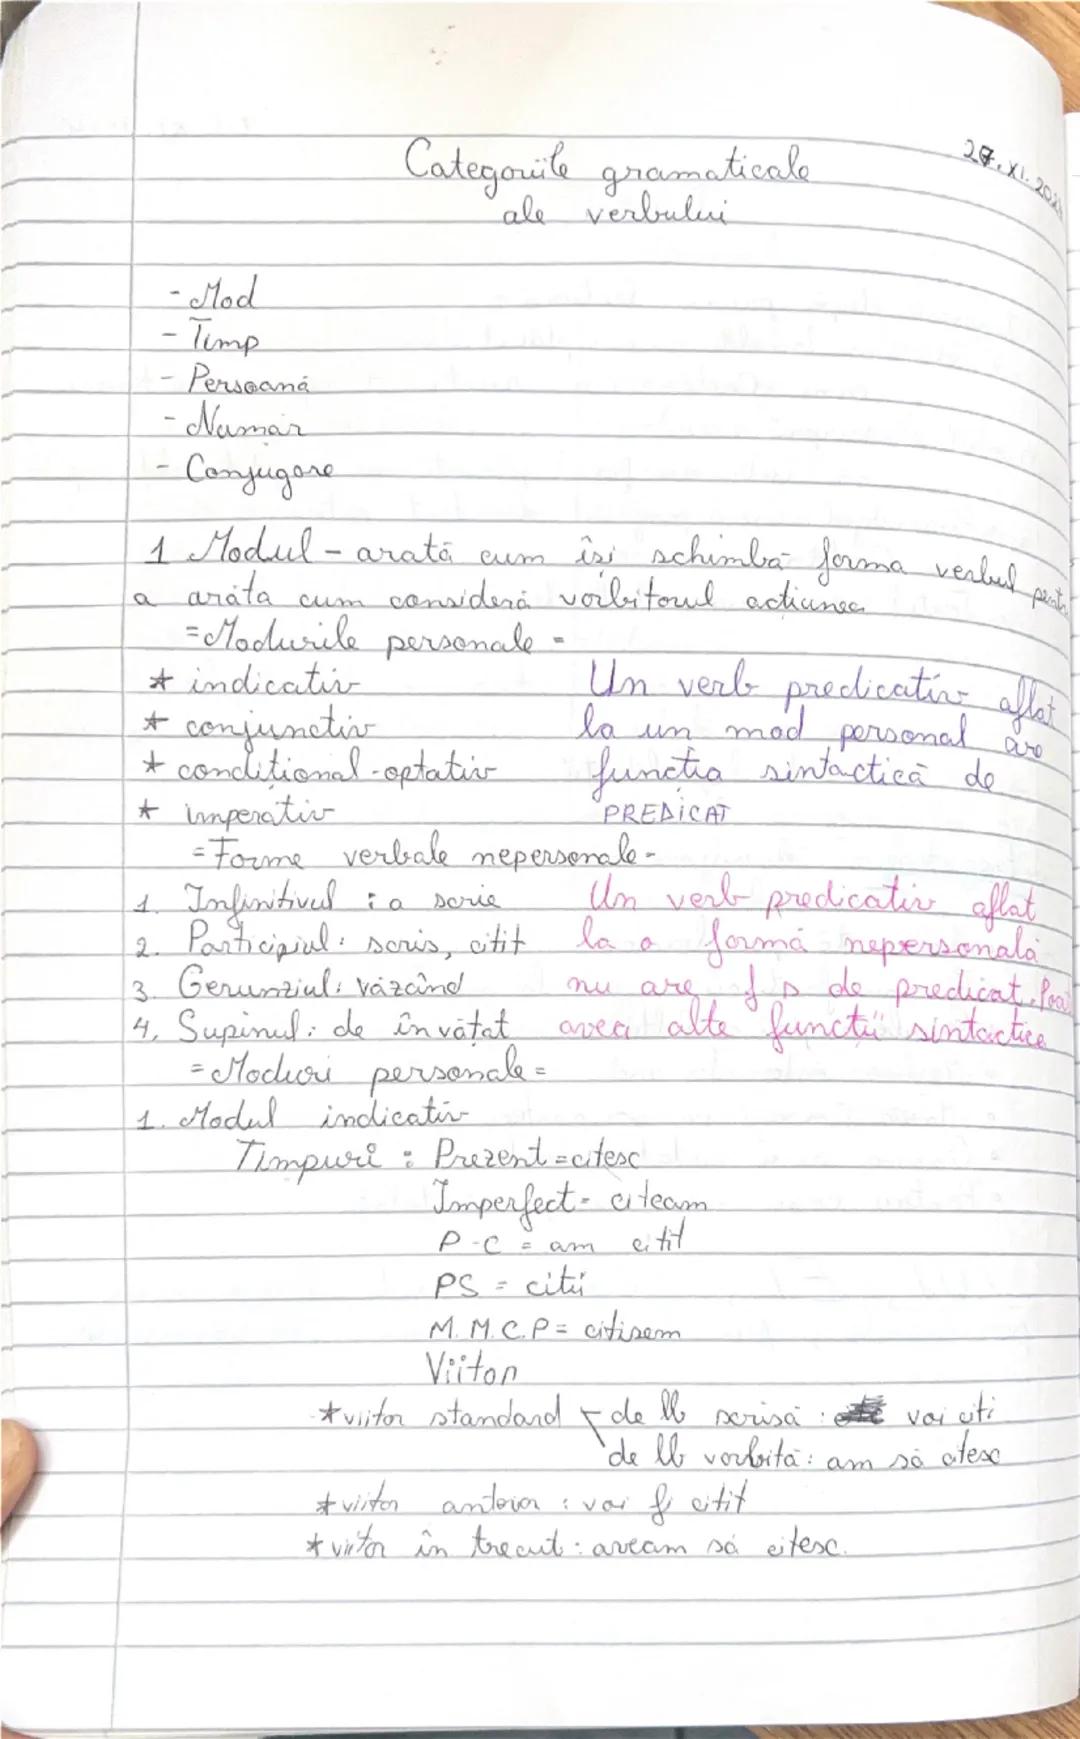 Categoriile gramaticale
ale verbului
27.XI.202
- Mod
- Timp
- Persoană
- Număr
- Conjugare
1 Modul - arată cum își schimbă forma verbul pentru
a arăta cum consideră vorbitorul acțiunea
= Modurile personale =
* indicativ
* conjunctiv
* condițional-optativ
* imperativ
Un verb predicativ aflat
la un mod personal are
funcția sintactică de
PREDICAT
= Forme verbale nepersonale -
1. Infinitivul : a scrie
2. Participiul: scris, citit
3. Gerunziul: văzând
4. Supinul: de învățat
Un verb predicativ aflat
la o formă nepersonală
nu are f s de predicat. Poa
avea alte funcții sintactice
= Moduri personale =
1. Modul indicativ
Timpuri : Prezent = citesc
Imperfect - citeam
P-C = am citit
PS = citii
M.M.C.P = citisem
Viitor
* viitor standard de lb scrisă : voi citi
de lb vorbită: am să citesc
* viitor anterior : voi fi citit
* viitor în trecut : aveam să citesc.